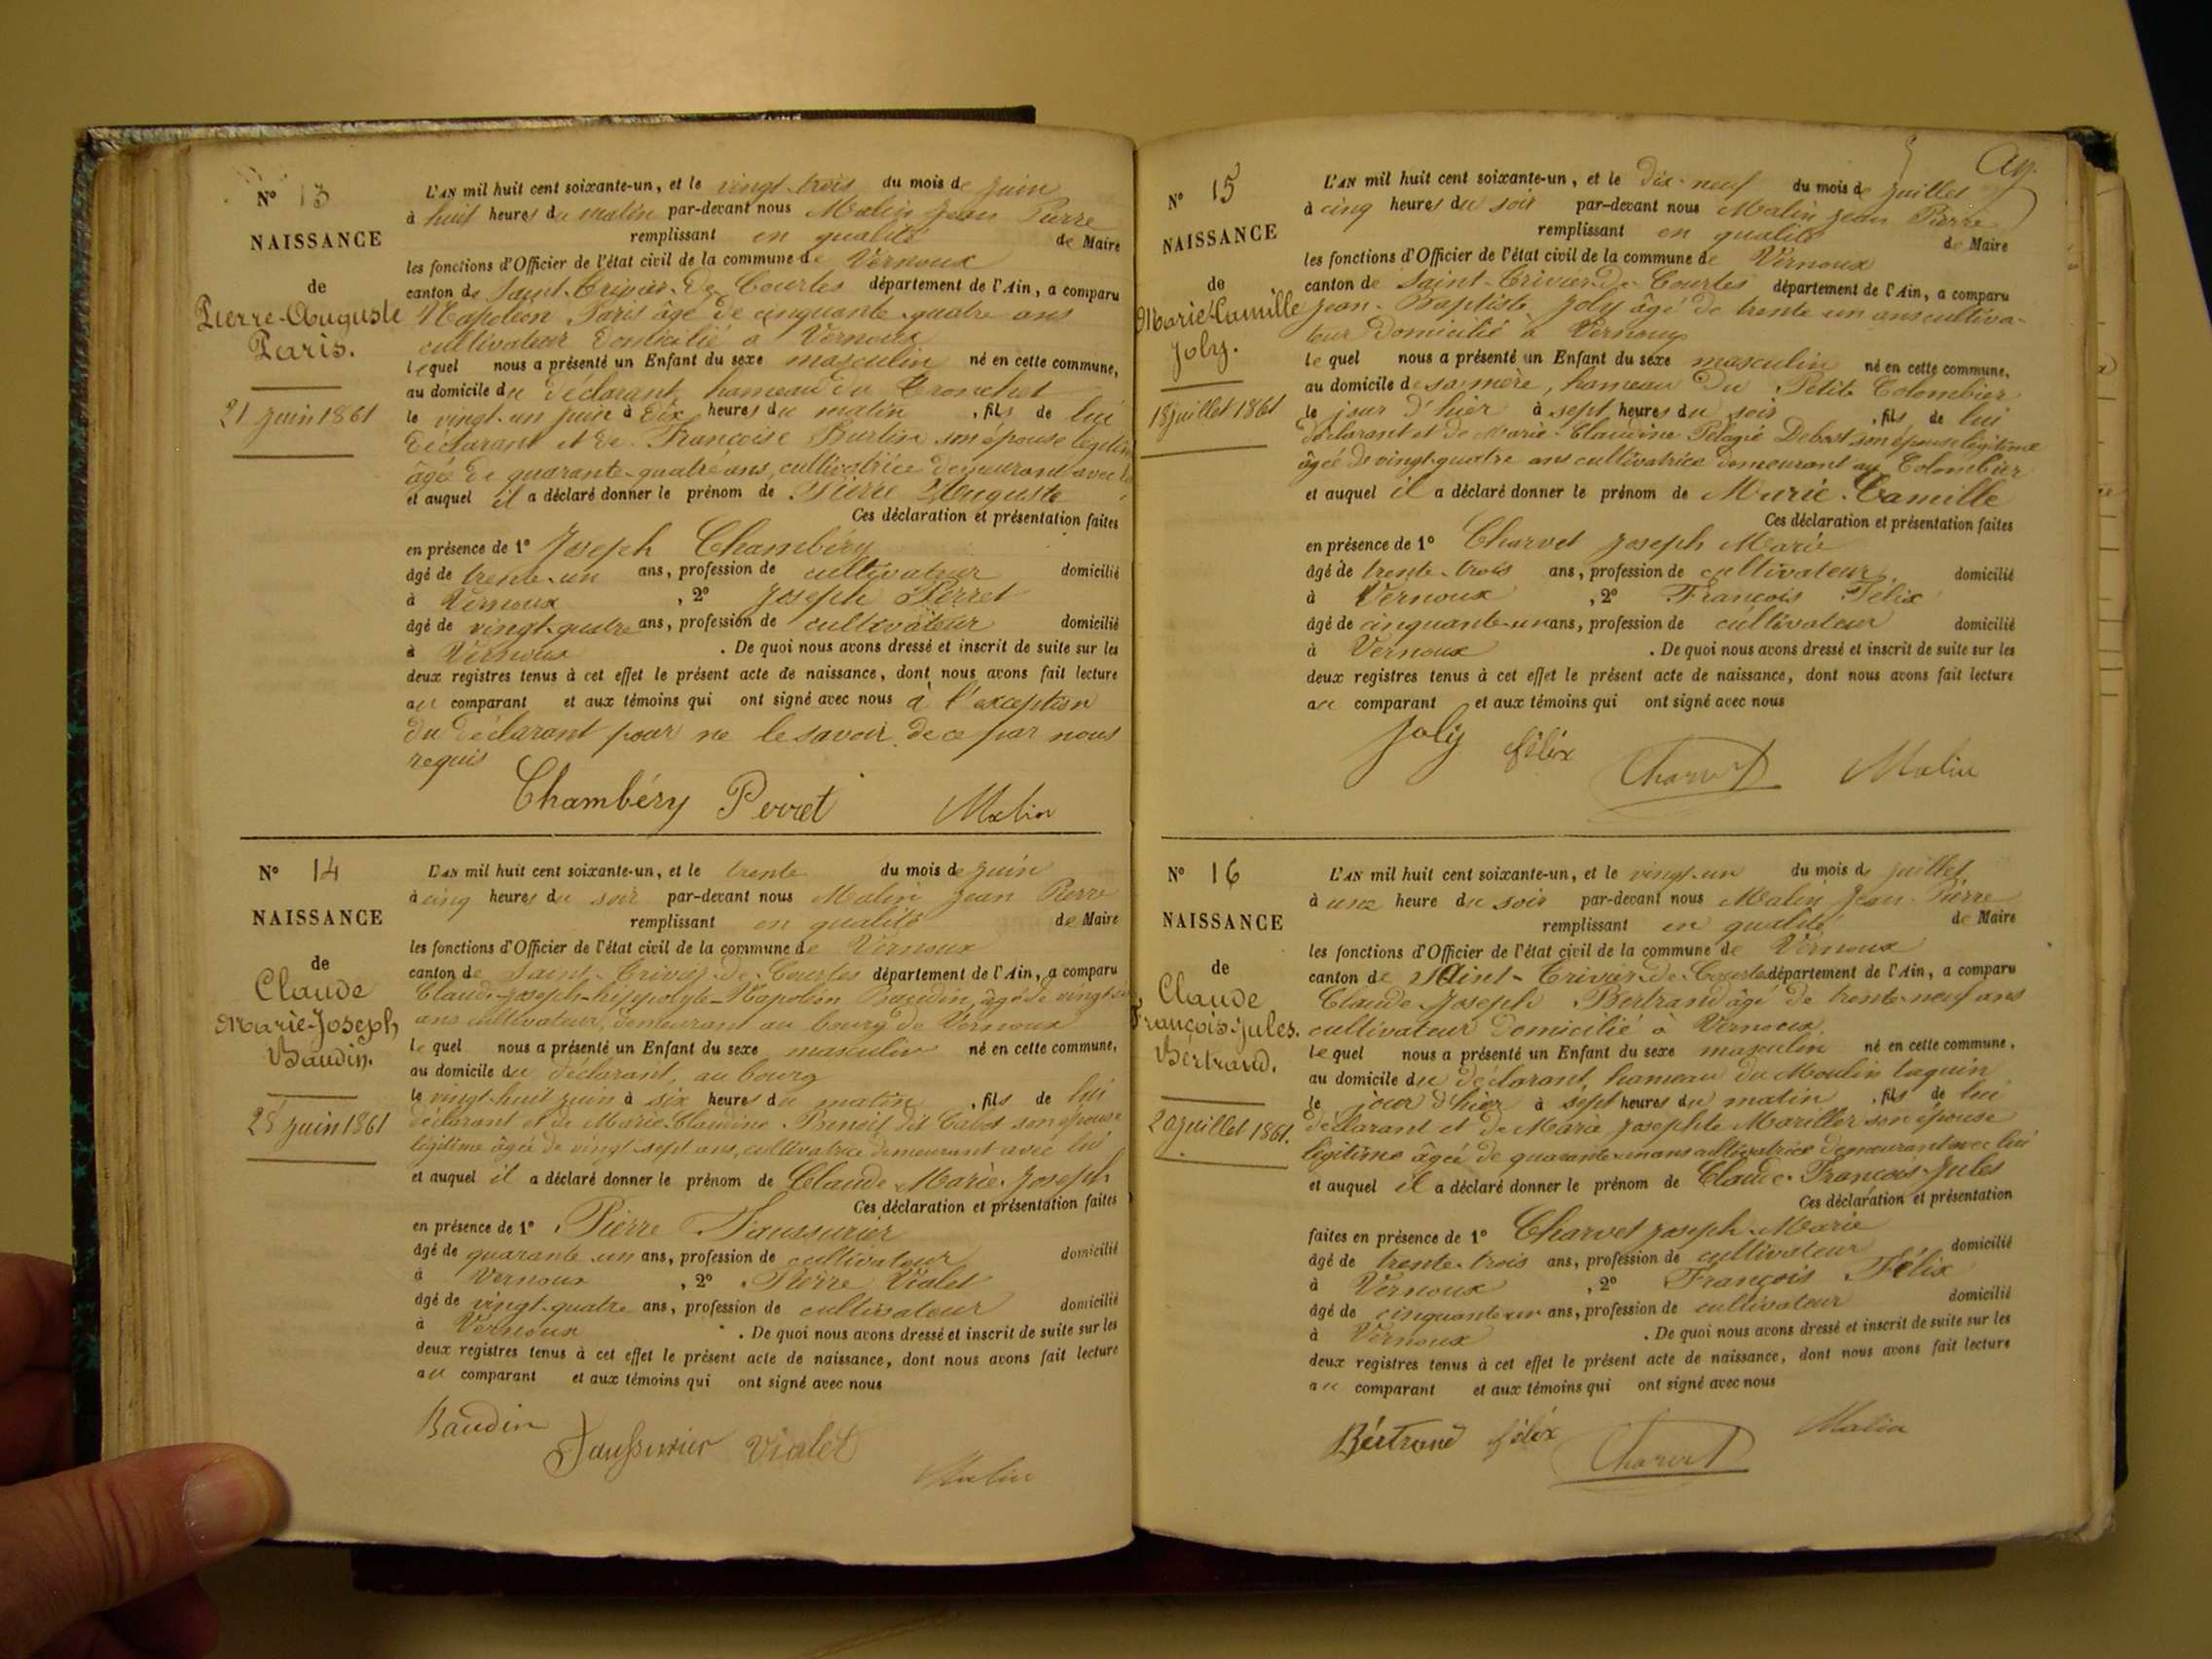 N° 13
NAISSANCE
de
Pierre-Auguste
Paris.
21 juin 1861
L'AN mil huit cent soixante-un, et le vingt-trois du mois de juin
à huit heures du matin par-devant nous Malin Jean Pierre
remplissant en qualité de Maire
les fonctions d'Officier de l'état civil de la commune de Vernoux
canton de Saint-Trivier-De-Courtes département de l'Ain, a comparu
Napoléon Paris âgé de cinquante-quatre ans
cultivateur domicilié à Vernoux
lequel nous a présenté un Enfant du sexe masculin né en cette commune,
au domicile du déclarant, hameau du
le vingt-un juin à dix heures du matin, fils de lui
déclarant et de Françoise Burtin son épouse légitime
âgée de quarante-quatre ans, cultivatrice demeurant avec lui
et auquel il a déclaré donner le prénom de Pierre Auguste
Ces déclaration et présentation faites
en présence de 1° Joseph Chambéry
âgé de trente-un ans, profession de cultivateur domicilié
à Vernoux, 2° Joseph Perret
âgé de vingt-quatre ans, profession de cultivateur domicilié
à Vernoux. De quoi nous avons dressé et inscrit de suite sur les
deux registres tenus à cet effet le présent acte de naissance, dont nous avons fait lecture
au comparant et aux témoins qui ont signé avec nous à l'exception
du déclarant pour ne le savoir de ce par nous
requis
Chambéry Perret Malin
N° 14
NAISSANCE
de
Claude
Marie-Joseph
Baudin.
28 juin 1861
L'AN mil huit cent soixante-un, et le trente du mois de juin
à cinq heures du soir par-devant nous Malin Jean Pierre
remplissant en qualité de Maire
les fonctions d'Officier de l'état civil de la commune de Vernoux
canton de Saint-Trivier-De-Courtes département de l'Ain, a comparu
Claude-Joseph-hippolyte-Napoléon Baudin, âgé de vingt
ans cultivateur, demeurant au bourg de Vernoux
lequel nous a présenté un Enfant du sexe masculin né en cette commune,
au domicile du déclarant, au bourg
le vingt-huit juin à six heures du matin, fils de lui
déclarant et de Marie-Claudine Benoit dit son épouse
légitime âgée de vingt-sept ans, cultivatrice demeurant avec lui
et auquel il a déclaré donner le prénom de Claude-Marie-Joseph
Ces déclaration et présentation faites
en présence de 1° Pierre Jaussurier
âgé de quarante-un ans, profession de cultivateur domicilié
à Vernoux, 2° Pierre Vialet
âgé de vingt-quatre ans, profession de cultivateur domicilié
à Vernoux. De quoi nous avons dressé et inscrit de suite sur les
deux registres tenus à cet effet le présent acte de naissance, dont nous avons fait lecture
au comparant et aux témoins qui ont signé avec nous
Baudin Vialet Malin
N° 15
NAISSANCE
de
Marie-Camille
Joly.
18 juillet 1861
L'AN mil huit cent soixante-un, et le dix-neuf du mois de juillet
à cinq heures du soir par-devant nous Malin Jean Pierre
remplissant en qualité de Maire
les fonctions d'Officier de l'état civil de la commune de Vernoux
canton de Saint-Trivier-De-Courtes département de l'Ain, a comparu
Jean-Baptiste Joly âgé de trente un ans cultiva-
teur domicilié à Vernoux
lequel nous a présenté un Enfant du sexe masculin né en cette commune,
au domicile de sa mère, hameau du Petit Colombier
le jour d'hier à sept heures du soir, fils de lui
déclarant et de Marie-Claudine Pélagie Debost son épouse légitime
âgée de vingt-quatre ans cultivatrice demeurant au Colombier
et auquel il a déclaré donner le prénom de Marie-Camille
Ces déclaration et présentation faites
en présence de 1° Charvet Joseph Marie
âgé de trente-trois ans, profession de cultivateur domicilié
à Vernoux, 2° François Félix
âgé de cinquante-un ans, profession de cultivateur domicilié
à Vernoux. De quoi nous avons dressé et inscrit de suite sur les
deux registres tenus à cet effet le présent acte de naissance, dont nous avons fait lecture
au comparant et aux témoins qui ont signé avec nous
Joly félix Charvet Malin
N° 16
NAISSANCE
de
Claude
François-Jules.
Bertrand.
20 juillet 1861.
L'AN mil huit cent soixante-un, et le vingt-un du mois de juillet
à une heure du soir par-devant nous Malin Jean-Pierre
remplissant en qualité de Maire
les fonctions d'Officier de l'état civil de la commune de Vernoux
canton de Saint-Trivier-De-Courtes département de l'Ain, a comparu
Claude Joseph Bertrand âgé de trente-neuf ans
cultivateur domicilié à Vernoux.
lequel nous a présenté un Enfant du sexe masculin né en cette commune,
au domicile du déclarant, hameau du Moulin taquin
le jour d'hier à sept heures du matin, fils de lui
déclarant et de Marie Josephte Mariller son épouse
légitime âgée de quarante-un ans cultivatrice demeurant avec lui
et auquel il a déclaré donner le prénom de Claude-François-Jules
Ces déclaration et présentation
faites en présence de 1° Charvet Joseph-Marie
âgé de trente-trois ans, profession de cultivateur domicilié
à Vernoux, 2° François Félix
âgé de cinquante un ans, profession de cultivateur domicilié
à Vernoux. De quoi nous avons dressé et inscrit de suite sur les
deux registres tenus à cet effet le présent acte de naissance, dont nous avons fait lecture
au comparant et aux témoins qui ont signé avec nous
Bertrand félix Charvet Malin